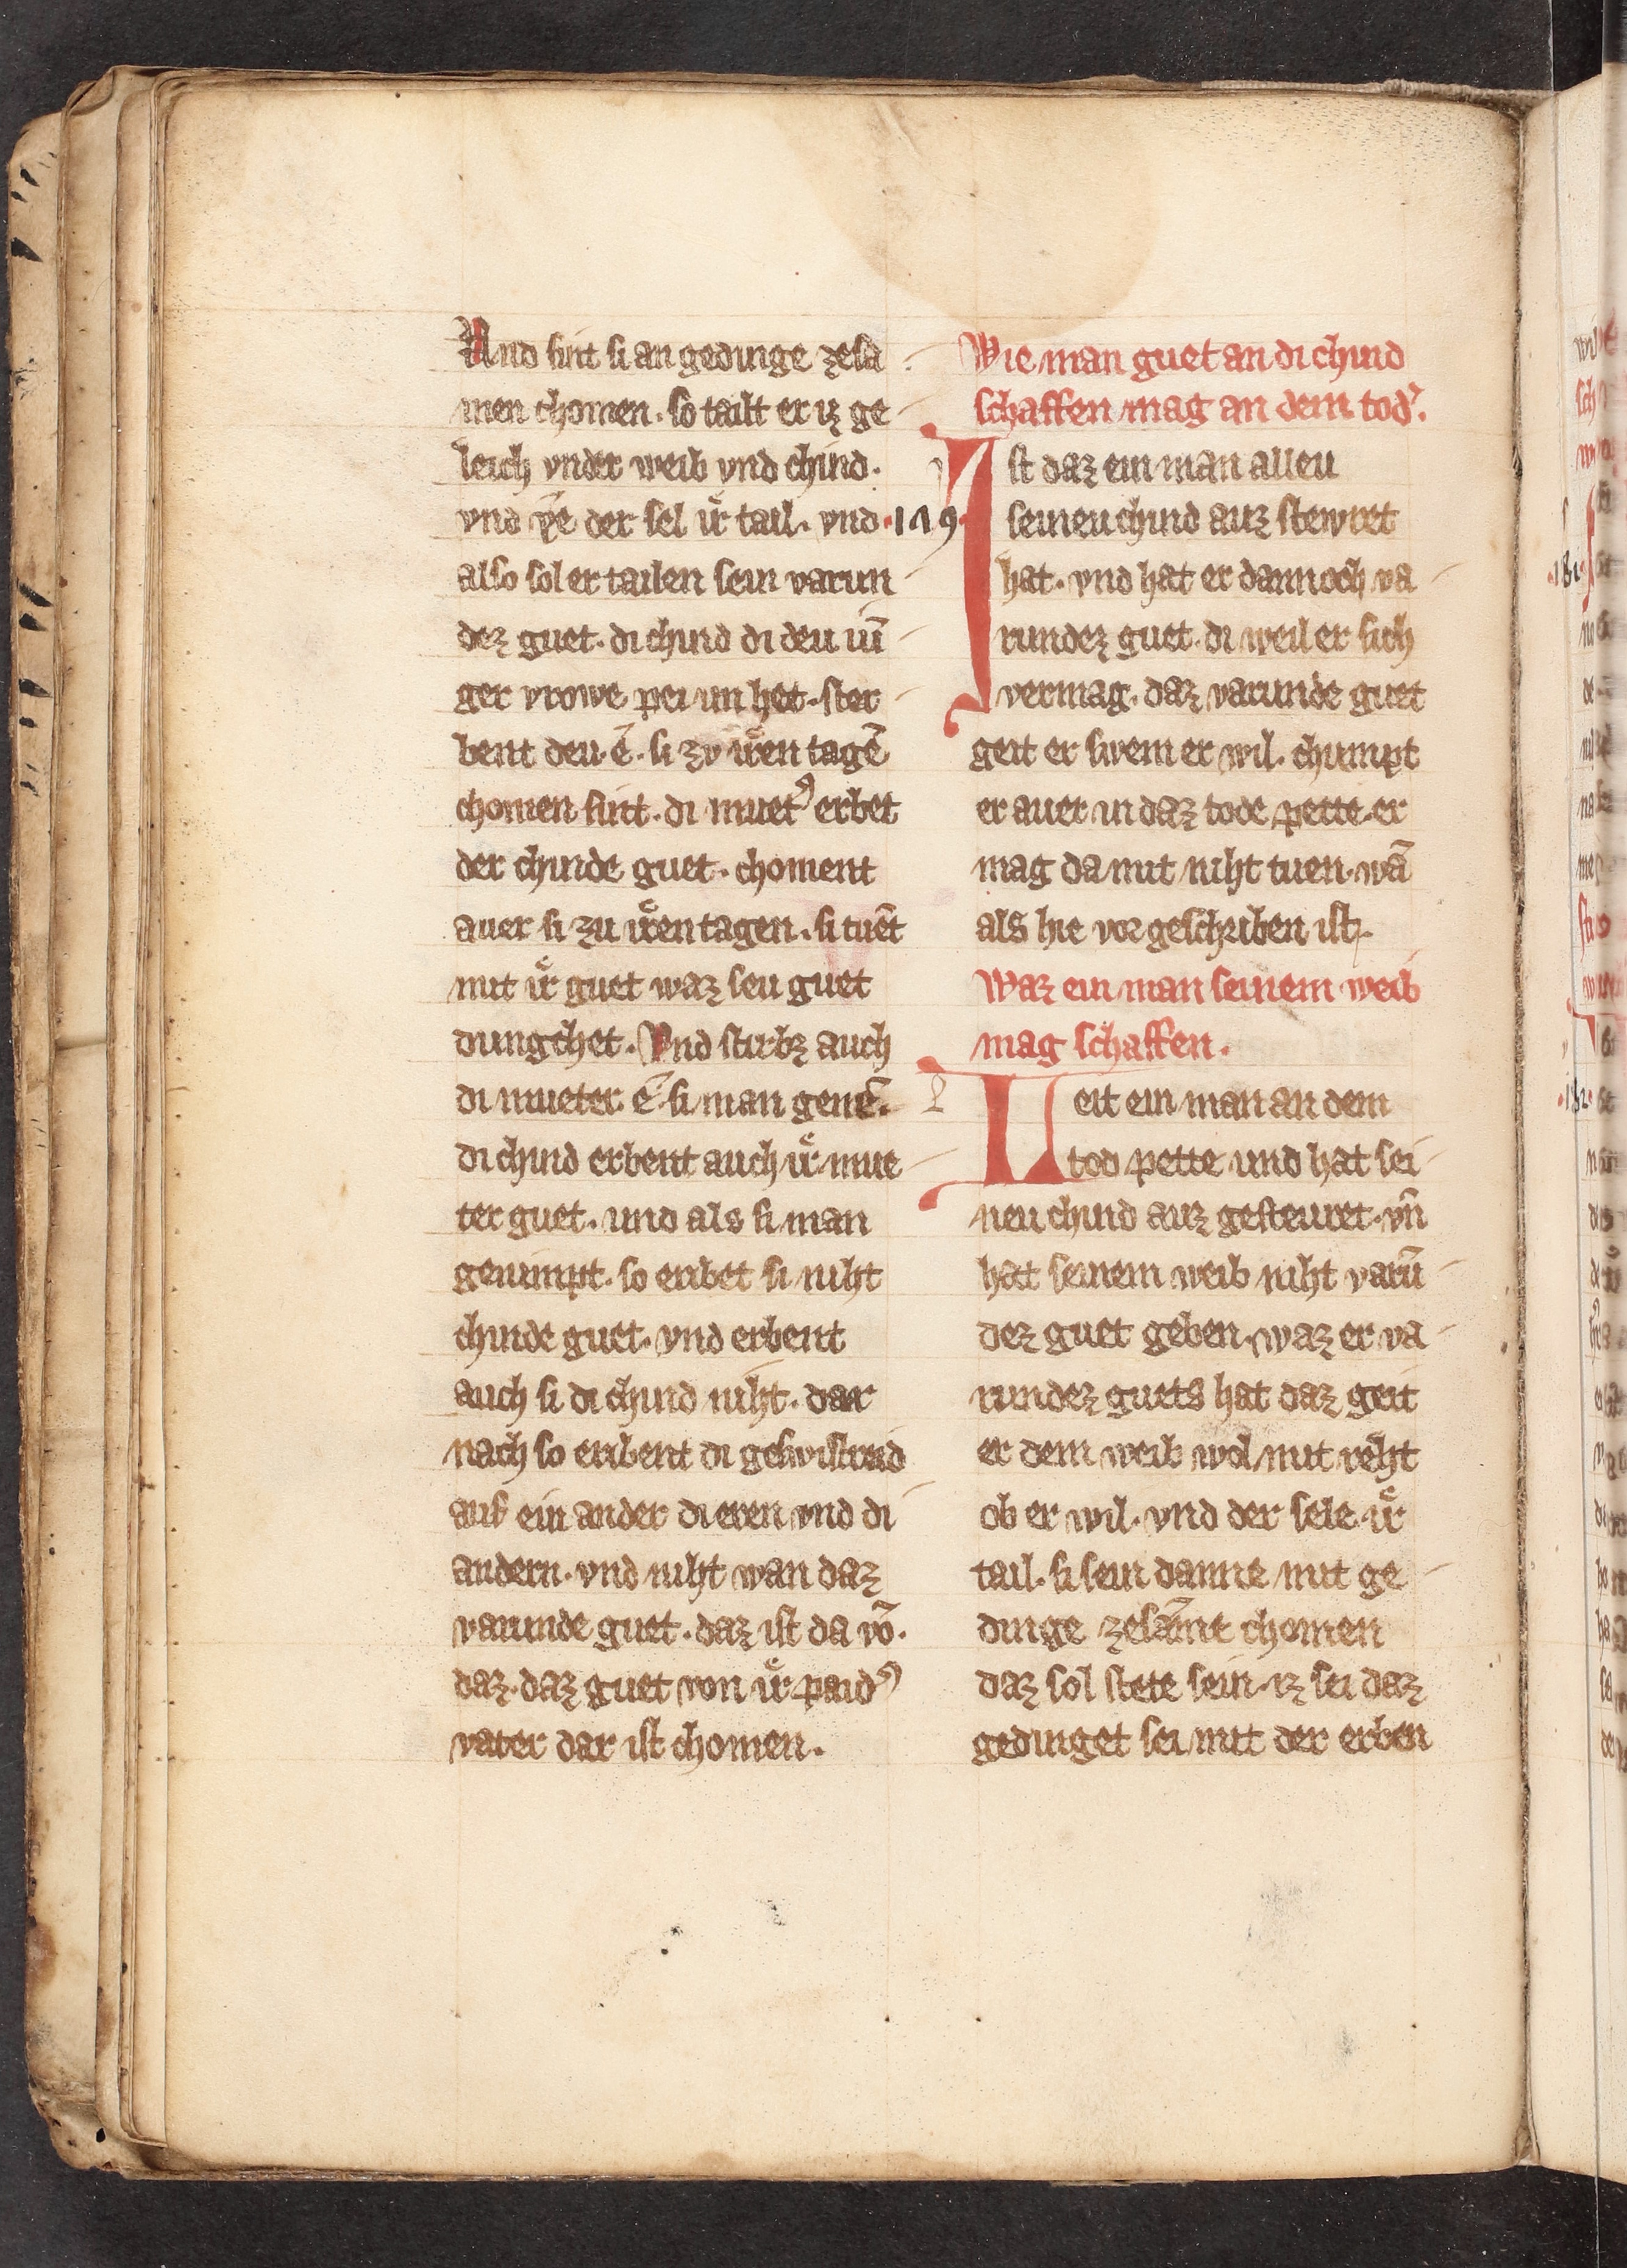 Vnd sint si an gedinge zesa
men chomen. so tailt er iz ge
leich vnder weib vnd chind.
vnd ye der sel ir̾ tail. vnd
also sol er tailen sein varun
dez guet. di chind di deu iū
ger vrowe pei im het. ster
bent deu. ē. si zv iren tagē
chomen sint. di muet᾽ erbet
der chinde guet. choment
auer si zu iren tagen. si tuēt
mit ir̾ guet waz seu guet
dungchet. Vnd stirbz auch
di mueter. ē. si man genē.
di chind erbent auch ir̾ mue
ter guet. und als si man
genimpt. so eribet si niht
chinde guet. vnd erbent
auch si di chind niht. dar
nach so eribent di geswistreid
auf ein ander di eren vnd di
andern. vnd niht wan daz
varunde guet. daz ist da vō.
daz. daz guet von ir̾ paid᾽
vater dar ist chomen.
Wie man guet an di chind
schaffen mag an dem tod᾽.
179.
Ist daz ein man alleu
seineu chind auz stewret
hat. vnd hat er dannoch va
rundez guet. di weil er sich
vermag. daz varunde guet
geit er swem er wil. chumpt
er auer in daz tode pette. er
mag da mit niht tuen. wā
als hie vor geschriben ist.
Waz ein man seinem weib
mag schaffen.
Leit ein man an dem
tod pette und hat sei
neu chind auz gesteuret. vn̄
hat seinem weib niht varū
dez guet geben. waz er va
rundez guets hat daz geit
er dem weib wol mit reht
ob er wil. vnd der sele. ir̾
tail. si sein danne mit ge
dinge zesāmt chomen
daz sol stete sein. iz sei daz
gedinget sei mit der erben